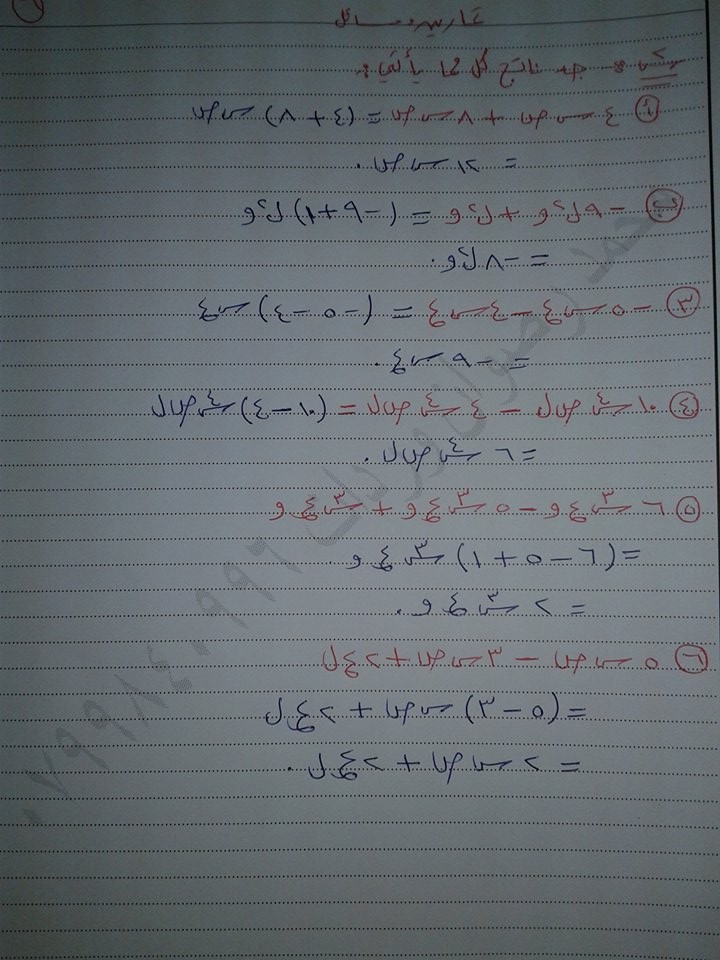 تمارين ومسائل
س : جد ناتج كل مما يأتي :
١ ٤ س ص + ٨ س ص = (٤ + ٨) س ص
= ١٢ س ص .
ب − ٩ ل²و + ل²و = (− ٩ + ١) ل²و
= − ٨ ل²و .
٣ − ٥ س ع − ٤ س ع = (− ٥ − ٤) س ع
= − ٩ س ع .
٤ ١٠ س⁴ ص ل − ٤ س⁴ ص ل = (١٠ − ٤) س⁴ ص ل
= ٦ س⁴ ص ل .
٥ ٦ س³ ع و − ٥ س³ ع و + س³ ع و
= (٦ − ٥ + ١) س³ ع و
= ٢ س³ ع و .
٦ ٥ س ص − ٣ س ص + ٢ ع ل
= (٥ − ٣) س ص + ٢ ع ل
= ٢ س ص + ٢ ع ل .